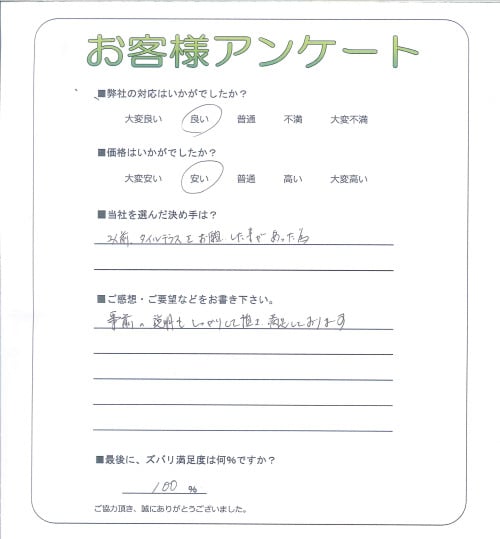 お客様アンケート
■弊社の対応はいかがでしたか？
大変良い 良い 普通 不満 大変不満
■価格はいかがでしたか？
大変安い 安い 普通 高い 大変高い
■当社を選んだ決め手は？
以前、タイルテラスをお願いした事があった為
■ご感想・ご要望などをお書き下さい。
事前の説明もしっかりして 満足しております
■最後に、ズバリ満足度は何％ですか？
100 ％
ご協力頂き、誠にありがとうございました。